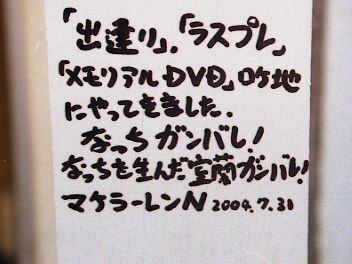 「出逢り」.「ラスプレ」
「メモリアルDVD」ロケ地
にやってきました.
なっちガンバレ!
なっちを生んだ室蘭ガンバレ!
マケラーレンN 2004.7.31